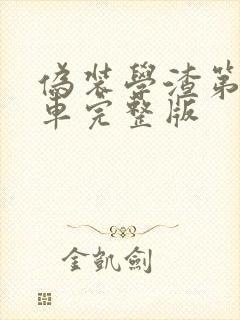 偽裝學渣第
車完整版
金凱劍